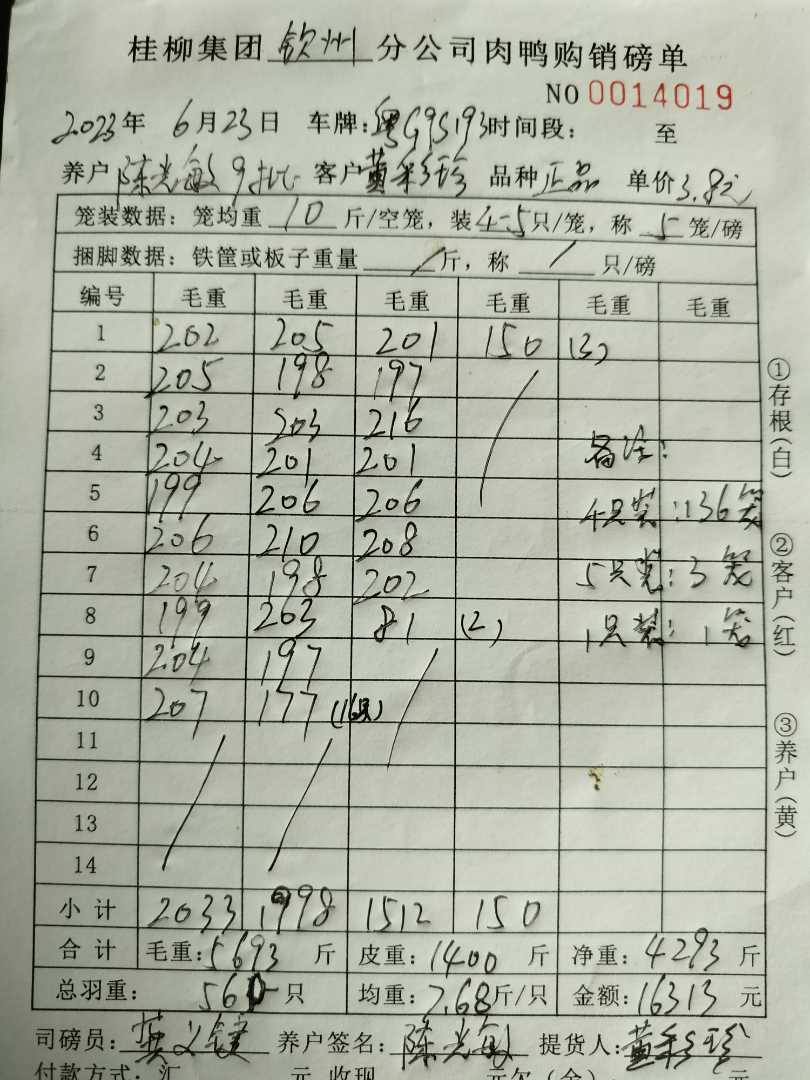 桂柳集团 钦州 分公司肉鸭购销磅单
NO 0014019
2023年 6月23日 车牌:粤G95193 时间段: 至
养户 陈光敏 9批 客户 黄彩珍 品种 正品 单价 3.8元
笼装数据: 笼均重 10 斤/空笼, 装 4-5 只/笼, 称 5 笼/磅
捆脚数据: 铁筐或板子重量 / 斤, 称 / 只/磅
编号 毛重 毛重 毛重 毛重 毛重 毛重
1 202 205 201 150 (3)
2 205 198 197
3 203 203 216
4 204 201 201 备注:
5 199 206 206 4只装:136笼
6 206 210 208
7 204 198 202 5只装:3笼
8 199 203 81 (2) 1只装:1笼
9 204 197
10 207 177 (16只)
11
12
13
14
小计 2033 1998 1512 150
合计 毛重:5693 斤 皮重:1400 斤 净重:4293 斤
总羽重: 560 只 均重:7.68斤/只 金额:16313 元
司磅员: 养户签名: 陈光敏 提货人: 黄彩珍
付款方式: 汇 元 收现 元 欠(余) 元
①存根(白)
②客户(红)
③养户(黄)